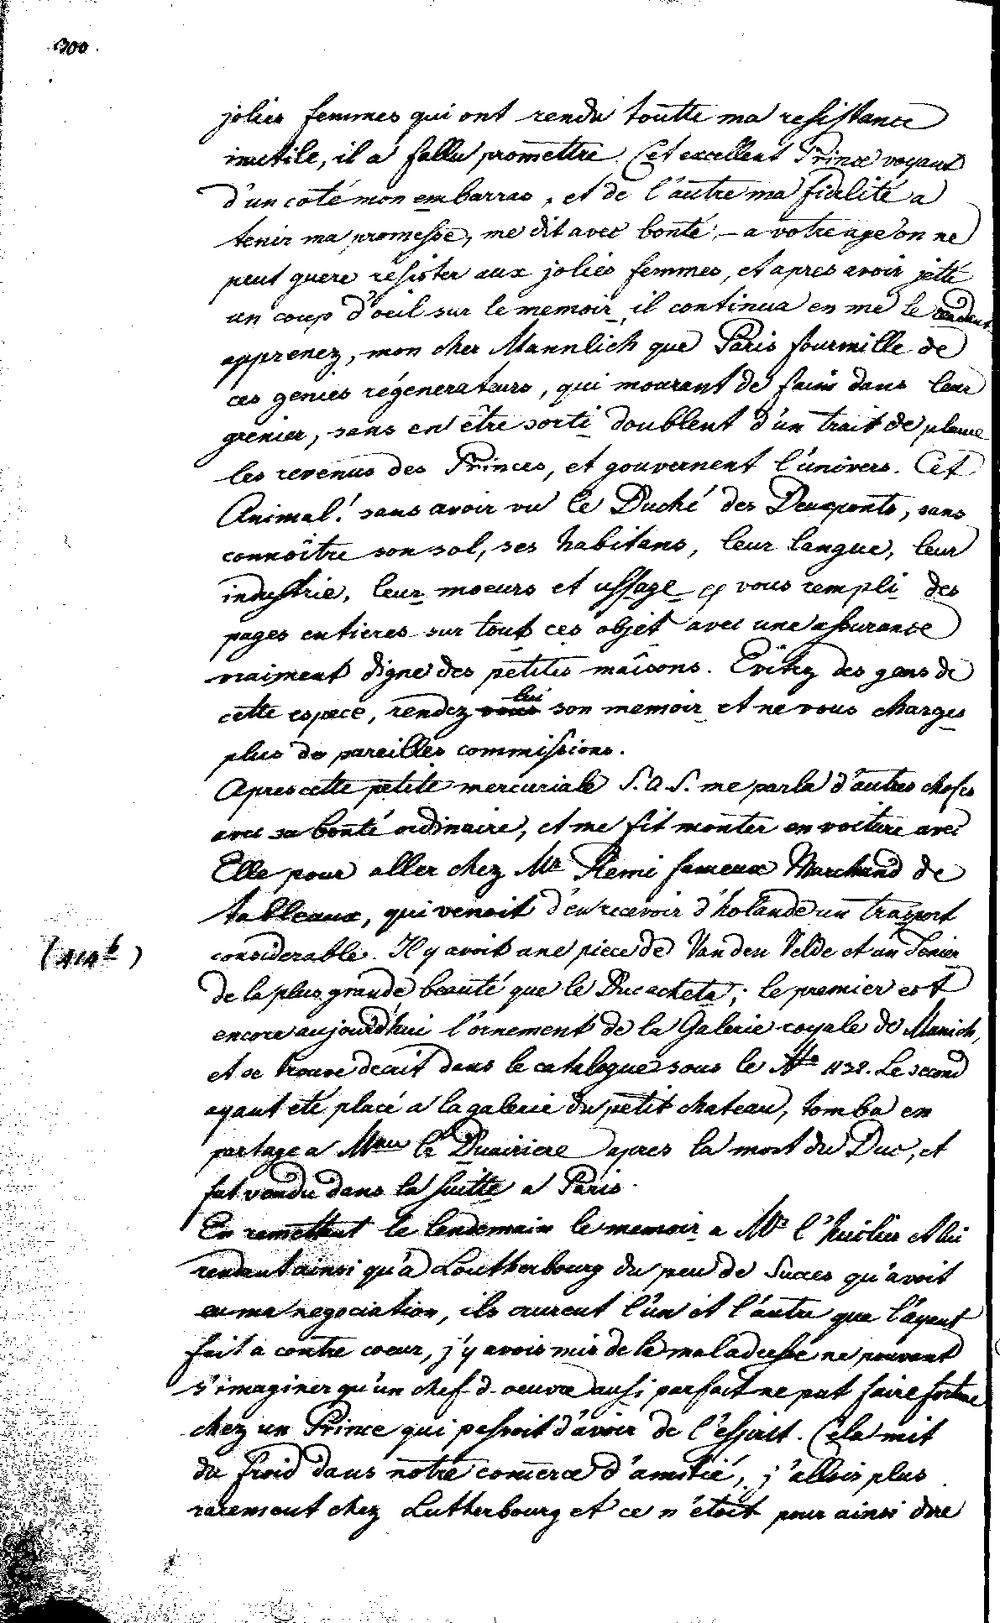 300.
jolies femmes qui ont rendu toutte ma resistance
inutile, il a fallu promettre. Cet excellent Prince voyant
d'un coté mon embarras, et de l'autre ma fidelité a
tenir ma promesse, me dit avec bonté: – a votre age on ne
peut guere résister aux jolies femmes, et apres avoir jetté
un coup d'oeil sur le memoir, il continua en me le rendant
apprenez, mon cher Mannlich que Paris fourmille de
ces genies régenerateurs, qui mourant de faim dans leur
grenier, sans en être sorti doublent d'un trait de plume
les revenus des Princes, et gouvernent l'univers. Cet
Animal! sans avoir vu le Duché des Deuxponts, sans
connoître son sol, ses habitans, leur langue, leur
industrie, leur moeurs et ussage vous rempli des
pages entieres sur tout ces objet avec une assurance
vraiment digne des petites maisons. Evitez des gens de
cette espece, rendez lui son memoir et ne vous charges
plus de pareilles commissions.
Apres cette petite mercuriale S. A. S. me parla d'autres choses
avec sa bonté ordinaire, et me fit monter en voiture avec
Elle pour aller chez Mr Remi fameux Marchand de
tableaux, qui venoit d'en recevoir d'holande un trasport
considerable. Il y avoit une piece de Van den Velde et un Tenier
de la plus grande beauté que le Duc acheta; le premier est
encore aujourd'hui l'ornement de la Galerie royale de Munich,
et se trouve decrit dans le catalogue sous le No 1132. Le second
ayant eté placé a la galerie du petit chateau, tomba en
partage a Mme la Duairiere apres la mort du Duc, et
fut vendu dans la suitte a Paris.
En remettant le lendemain le memoir a Mr l'huilier et lui
rendant ainsi qu'a Loutherbourg du peu de Succes qu'avoit
eu ma negociation, ils crurent l'un et l'autre que l'ayent
fait a contre coeur, j'y avois mis de la maladresse ne pouvent
s'imaginer qu'un chef-d-oeuvre ausi parfait ne put faire fortune
chez un Prince qui passoit d'avoir de l'esprit. Cela mit
du froid dans notre comerce d'amitié, j'allois plus
rarement chez Lutherbourg et ce n'étoit pour ainsi dire